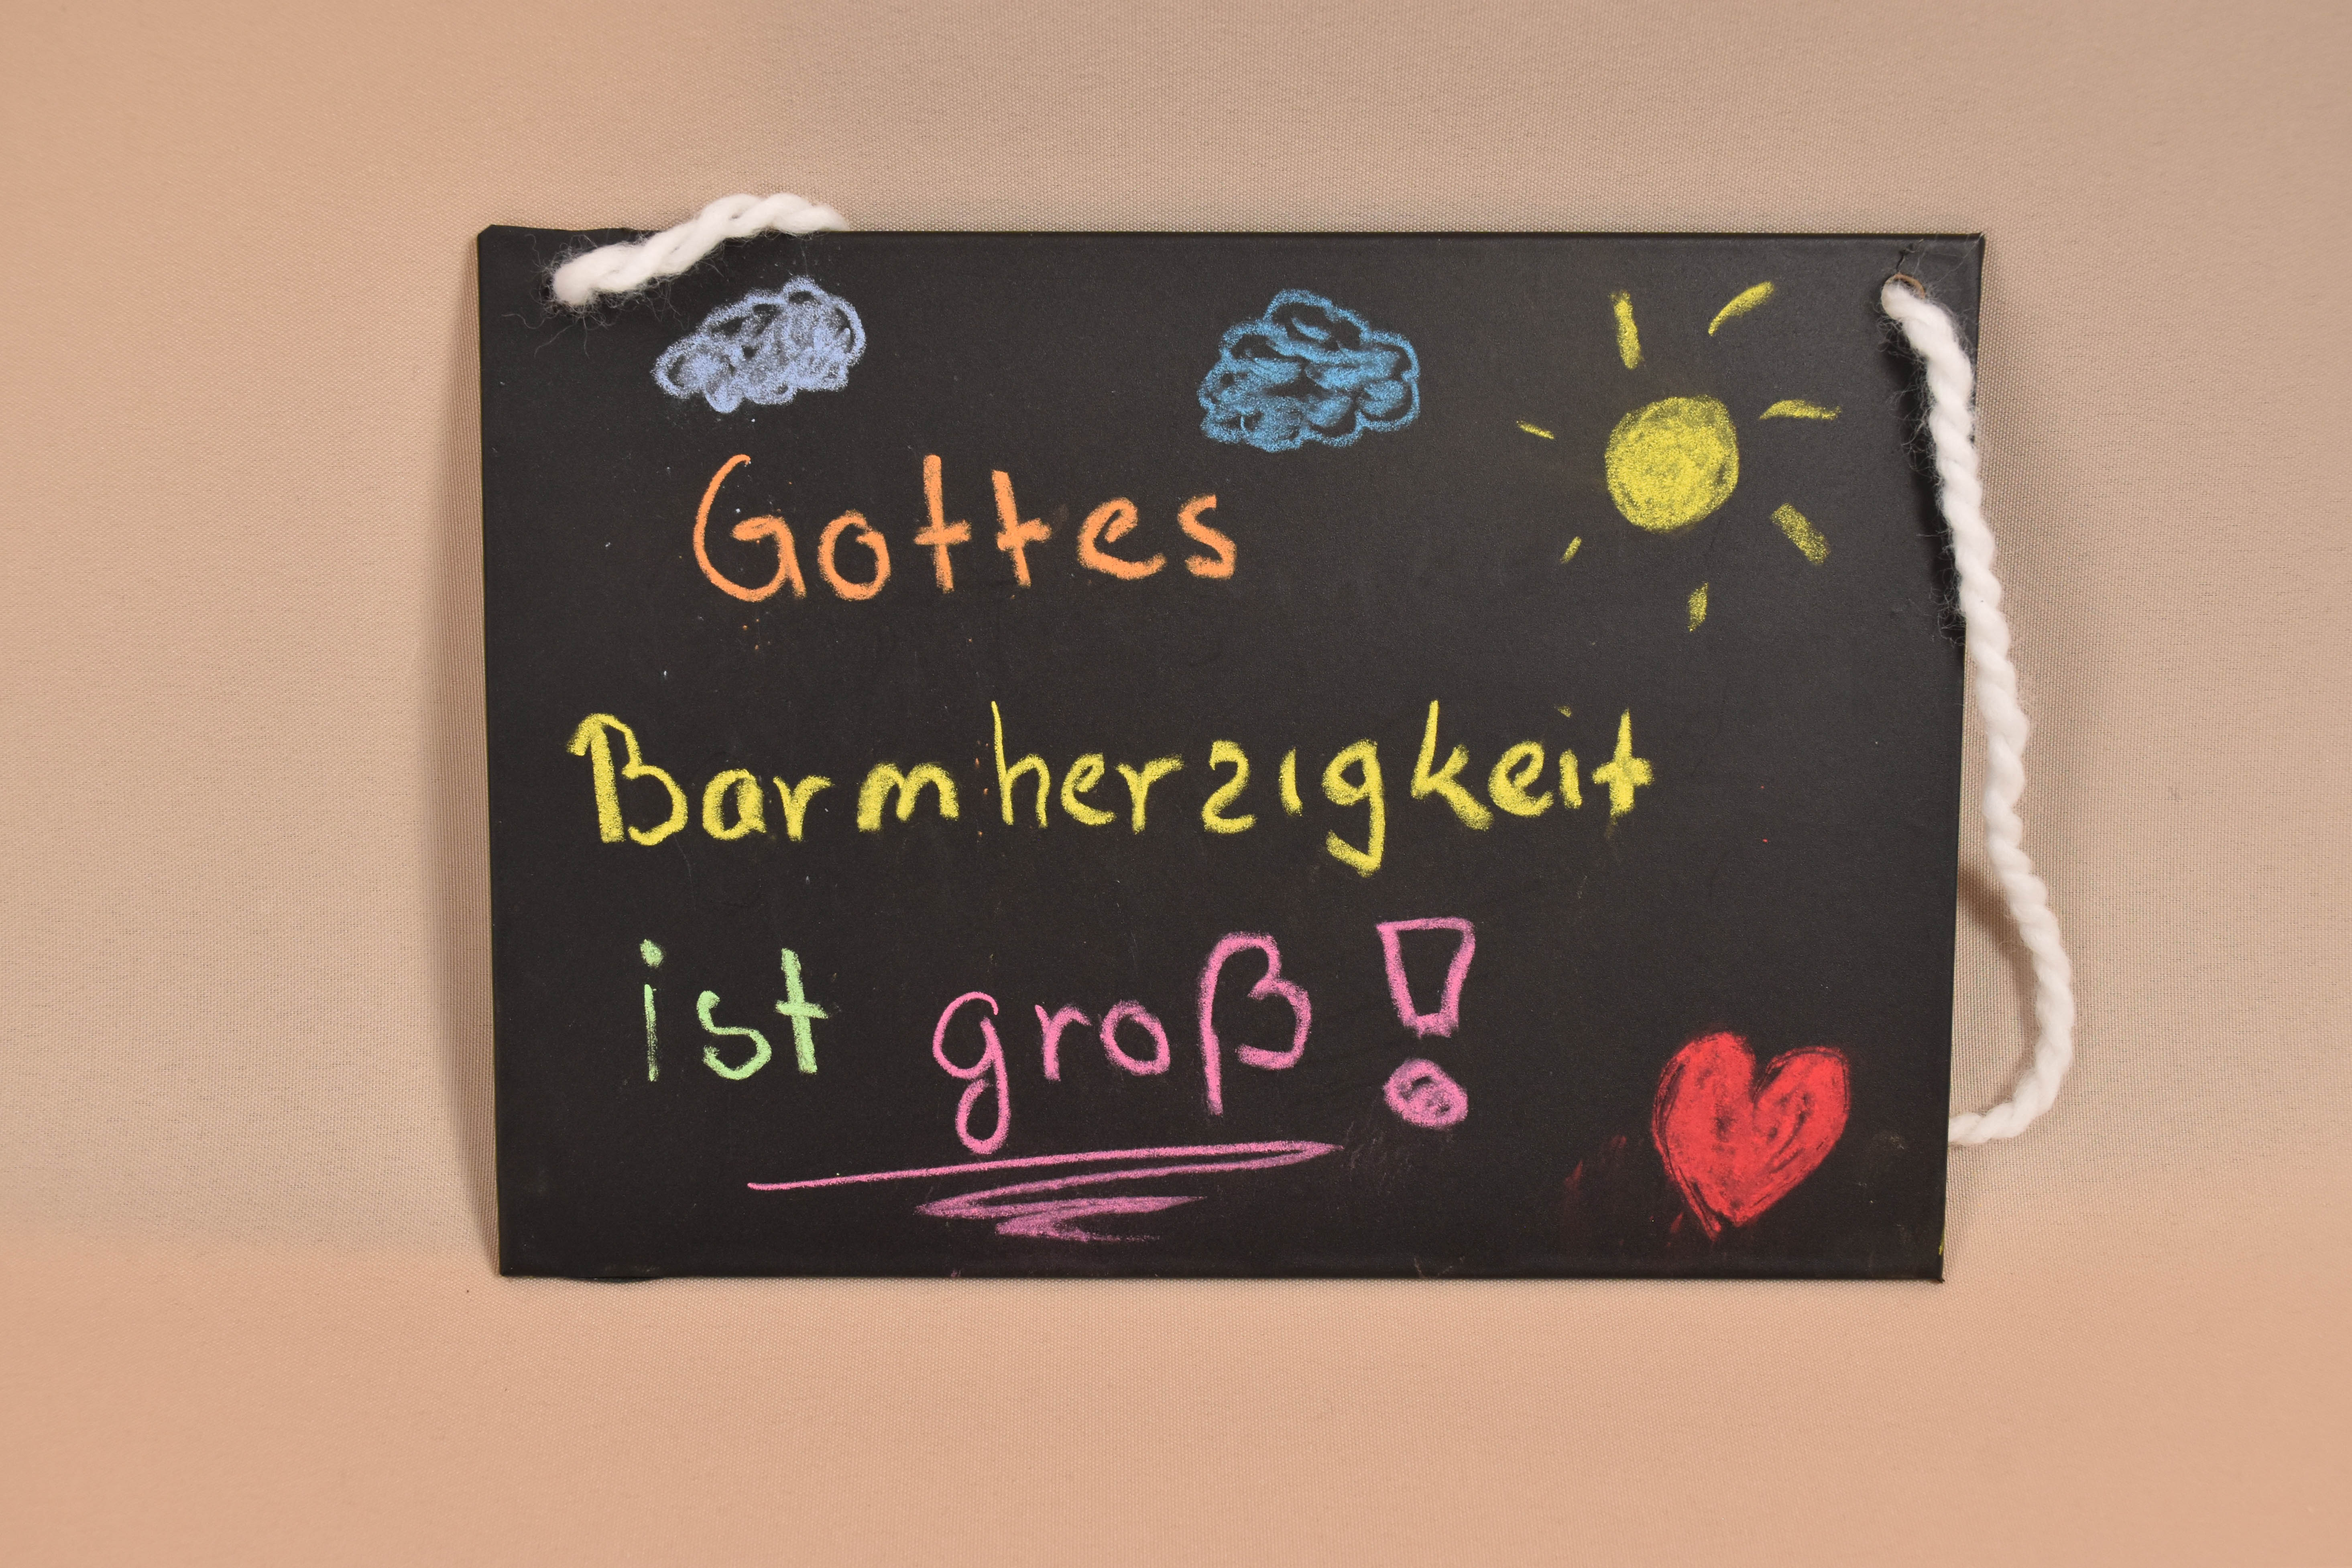 Gottes
Barmherzigkeit
ist groß!